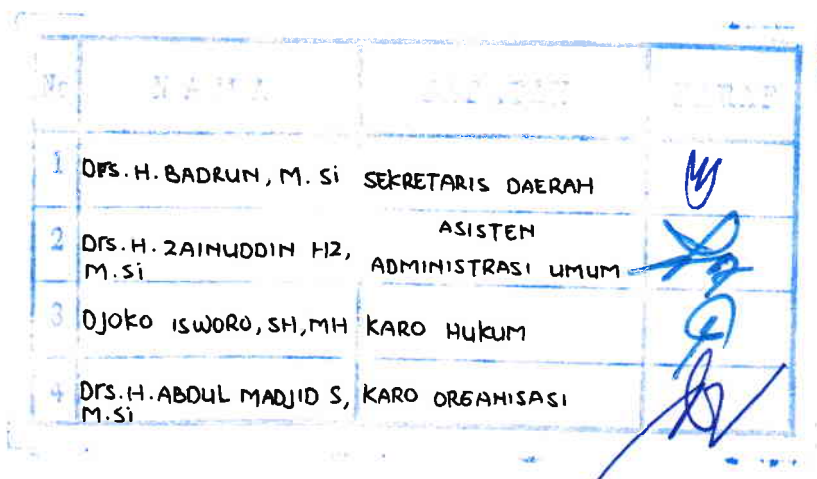 No NAMA JABATAN PARAF
1 Drs. H. BADRUN, M. Si SEKRETARIS DAERAH
2 Drs. H. ZAINUDDIN HZ, M.Si ASISTEN ADMINISTRASI UMUM
3 DJOKO ISWORO, SH,MH KARO HUKUM
4 Drs. H. ABDUL MADJID S, M.Si KARO ORGANISASI